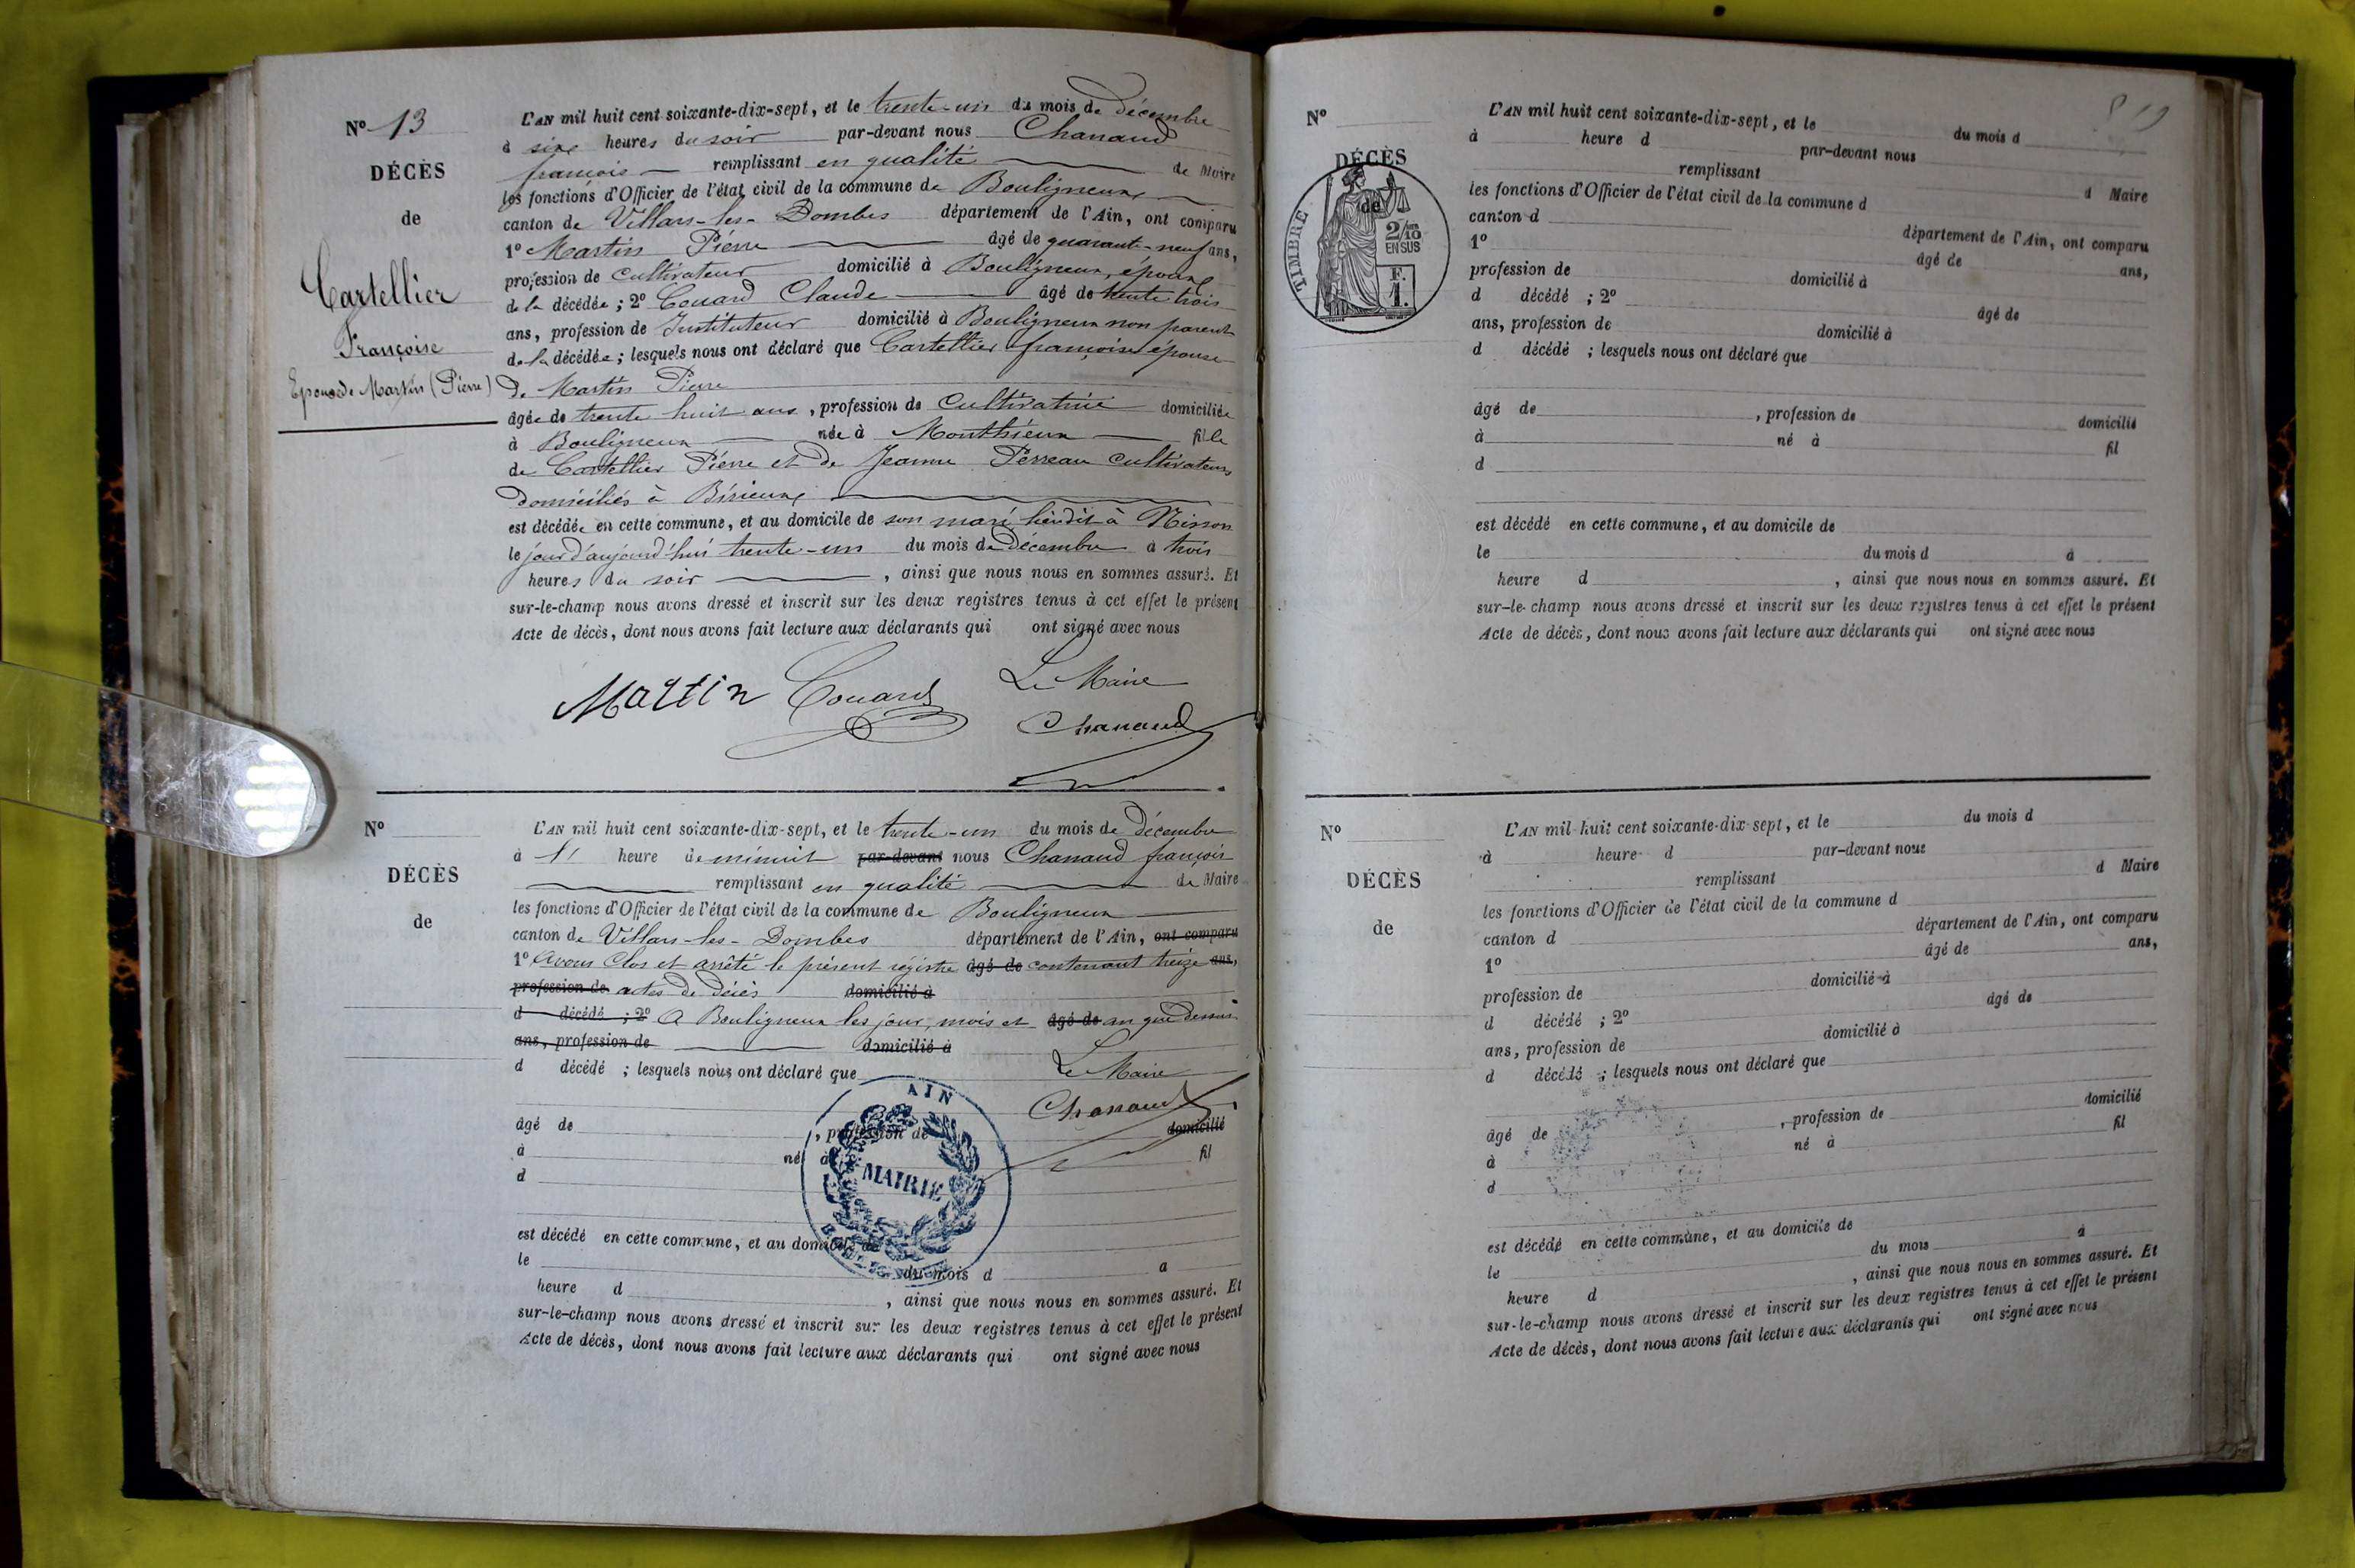 Nº 13
DÉCÈS
de
Cartellier
Françoise
Epouse de Martin (Pierre)
L'AN mil huit cent soixante-dix-sept, et le trente-un du mois de décembre
à six heures du soir par-devant nous Chanaud
françois remplissant en qualité de Maire
les fonctions d'Officier de l'état civil de la commune de Bouligneux
canton de Villars-les-Dombes département de l'Ain, ont comparu
1º Martin Pierre âgé de quarante-neuf ans,
profession de cultivateur domicilié à Bouligneux, époux
de la décédée ; 2º Couard Claude âgé de trente trois
ans, profession de Instituteur domicilié à Bouligneux non parent
de la décédée ; lesquels nous ont déclaré que Cartellier françoise épouse
de Martin Pierre
âgée de trente huit ans, profession de Cultivatrice domiciliée
à Bouligneux née à Monthieux fille
de Cartellier Pierre et de Jeanne Perreau cultivateurs
domiciliés à Birieux
est décédée en cette commune, et au domicile de son mari, lieu dit à
le jour d'aujourd'hui trente-un du mois de décembre à trois
heures du soir , ainsi que nous nous en sommes assuré. Et
sur-le-champ nous avons dressé et inscrit sur les deux registres tenus à cet effet le présent
Acte de décès, dont nous avons fait lecture aux déclarants qui ont signé avec nous
Martin Couard Le Maire
Chanaud
Nº
DÉCÈS
de
L'AN mil huit cent soixante-dix-sept, et le trente-un du mois de décembre
à heure de minuit par-devant nous Chanaud françois
remplissant en qualité de Maire
les fonctions d'Officier de l'état civil de la commune de Bouligneux
canton de Villars-les-Dombes département de l'Ain, ont comparu
1º Avons Clos et arrêté le présent régistre âgé de contenant treize ans,
profession de actes de décès domicilié à
d décédé ; 2º A Bouligneux les jour, mois et âgé de an que dessus
ans, profession de domicilié à
d décédé ; lesquels nous ont déclaré que Le Maire
Chanaud
âgé de , profession de domicilié
à né à fil
d
AIN
MAIRIE
est décédé en cette commune, et au domicile de
le du mois d à
heure d , ainsi que nous nous en sommes assuré. Et
sur-le-champ nous avons dressé et inscrit sur les deux registres tenus à cet effet le présent
Acte de décès, dont nous avons fait lecture aux déclarants qui ont signé avec nous
Nº
DÉCÈS
de
TIMBRE
2/10
EN SUS
F.
1.
L'AN mil huit cent soixante-dix-sept, et le du mois d
à heure d par-devant nous
remplissant d Maire
les fonctions d'Officier de l'état civil de la commune d
canton d département de l'Ain, ont comparu
1º âgé de ans,
profession de domicilié à
d décédé ; 2º âgé de
ans, profession de domicilié à
d décédé ; lesquels nous ont déclaré que
âgé de , profession de domicilié
à né à fil
d
est décédé en cette commune, et au domicile de
le du mois d à
heure d , ainsi que nous nous en sommes assuré. Et
sur-le-champ nous avons dressé et inscrit sur les deux registres tenus à cet effet le présent
Acte de décès, dont nous avons fait lecture aux déclarants qui ont signé avec nous
Nº
DÉCÈS
de
L'AN mil huit cent soixante-dix-sept, et le du mois d
à heure d par-devant nous
remplissant d Maire
les fonctions d'Officier de l'état civil de la commune d
canton d département de l'Ain, ont comparu
1º âgé de ans,
profession de domicilié à
d décédé ; 2º âgé de
ans, profession de domicilié à
d décédé ; lesquels nous ont déclaré que
âgé de , profession de domicilié
à né à fil
d
est décédé en cette commune, et au domicile de
le du mois à
heure d , ainsi que nous nous en sommes assuré. Et
sur-le-champ nous avons dressé et inscrit sur les deux registres tenus à cet effet le présent
Acte de décès, dont nous avons fait lecture aux déclarants qui ont signé avec nous